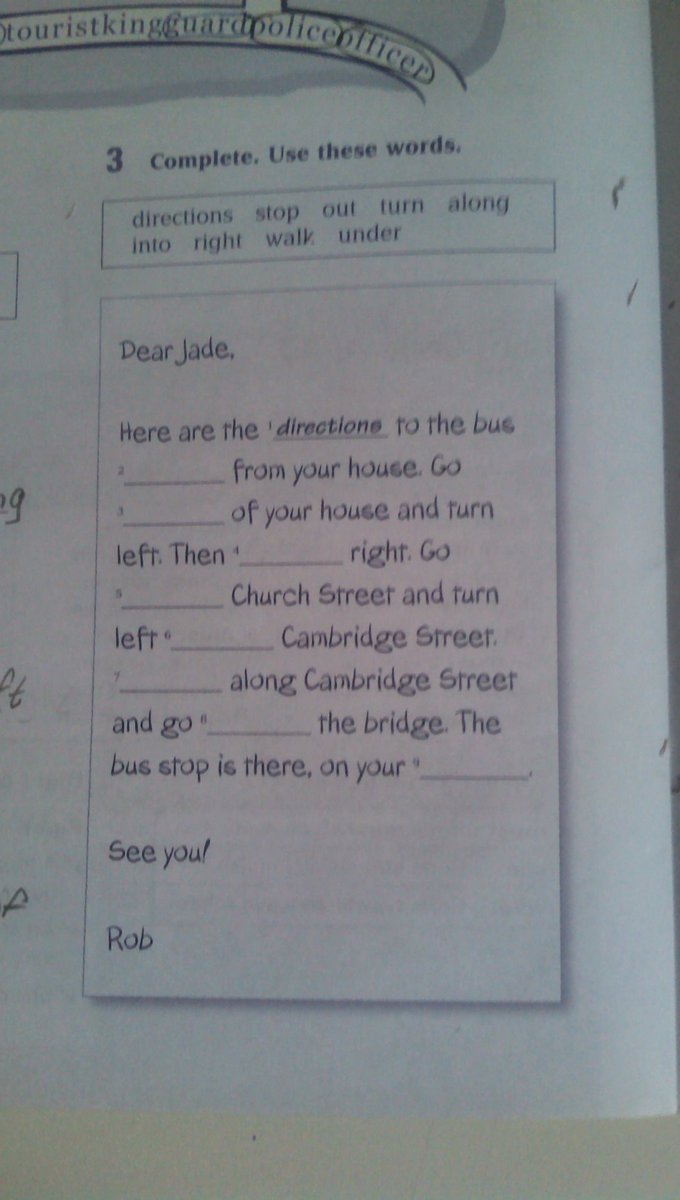 touristkingguardpoliceofficer
3 Complete. Use these words.
directions stop out turn along
into right walk under
Dear Jade,
Here are the 1 directions to the bus
2 ________ from your house. Go
3 ________ of your house and turn
left. Then 4 ________ right. Go
5 ________ Church Street and turn
left 6 ________ Cambridge Street.
7 ________ along Cambridge Street
and go 8 ________ the bridge. The
bus stop is there, on your 9 ________.
See you!
Rob